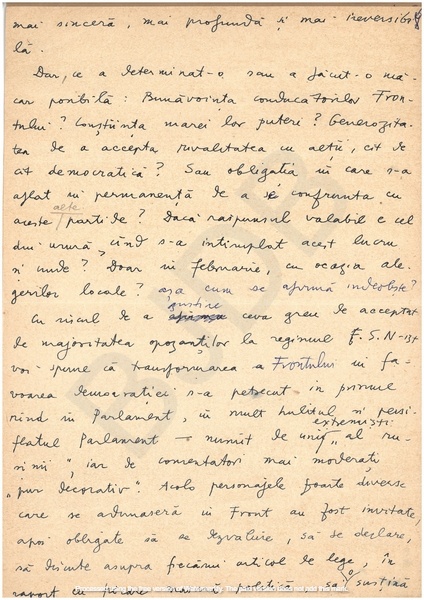 mai sinceră, mai profundă și mai ireversibi-
lă.
Dar, ce a determinat-o sau a făcut-o mă-
car posibilă: Bunăvoința conducătorilor Fron-
tului? Conștiința marei lor puteri? Generozita-
tea de a accepta rivalitatea cu alții, cît de
cît democratică? Sau obligația în care s-a
aflat în permanență de a se confrunta cu
alte
aceste partide? Dacă răspunsul valabil e cel
din urmă, cînd s-a întîmplat acest lucru
și unde? Doar în februarie, cu ocazia ale-
gerilor locale? așa cum se afirmă îndeobște?
susține
Cu riscul de a ceva greu de acceptat
de majoritatea opozanților la regimul F.S.N-ist
voi spune că transformarea a Frontului în fa-
voarea democrației s-a petrecut în primul
rînd în Parlament, în mult hulitul și persi-
extremiști
flatul Parlament numit de unii "al ru-
șinii", iar de comentatori mai moderați
"pur decorativ". Acolo personajele foarte diverse
care se adunaseră în Front au fost invitate,
apoi obligate să se dezvăluie, să se declare,
să discute asupra fiecărui articol de lege, în
raport cu fiecare politică, să susțină